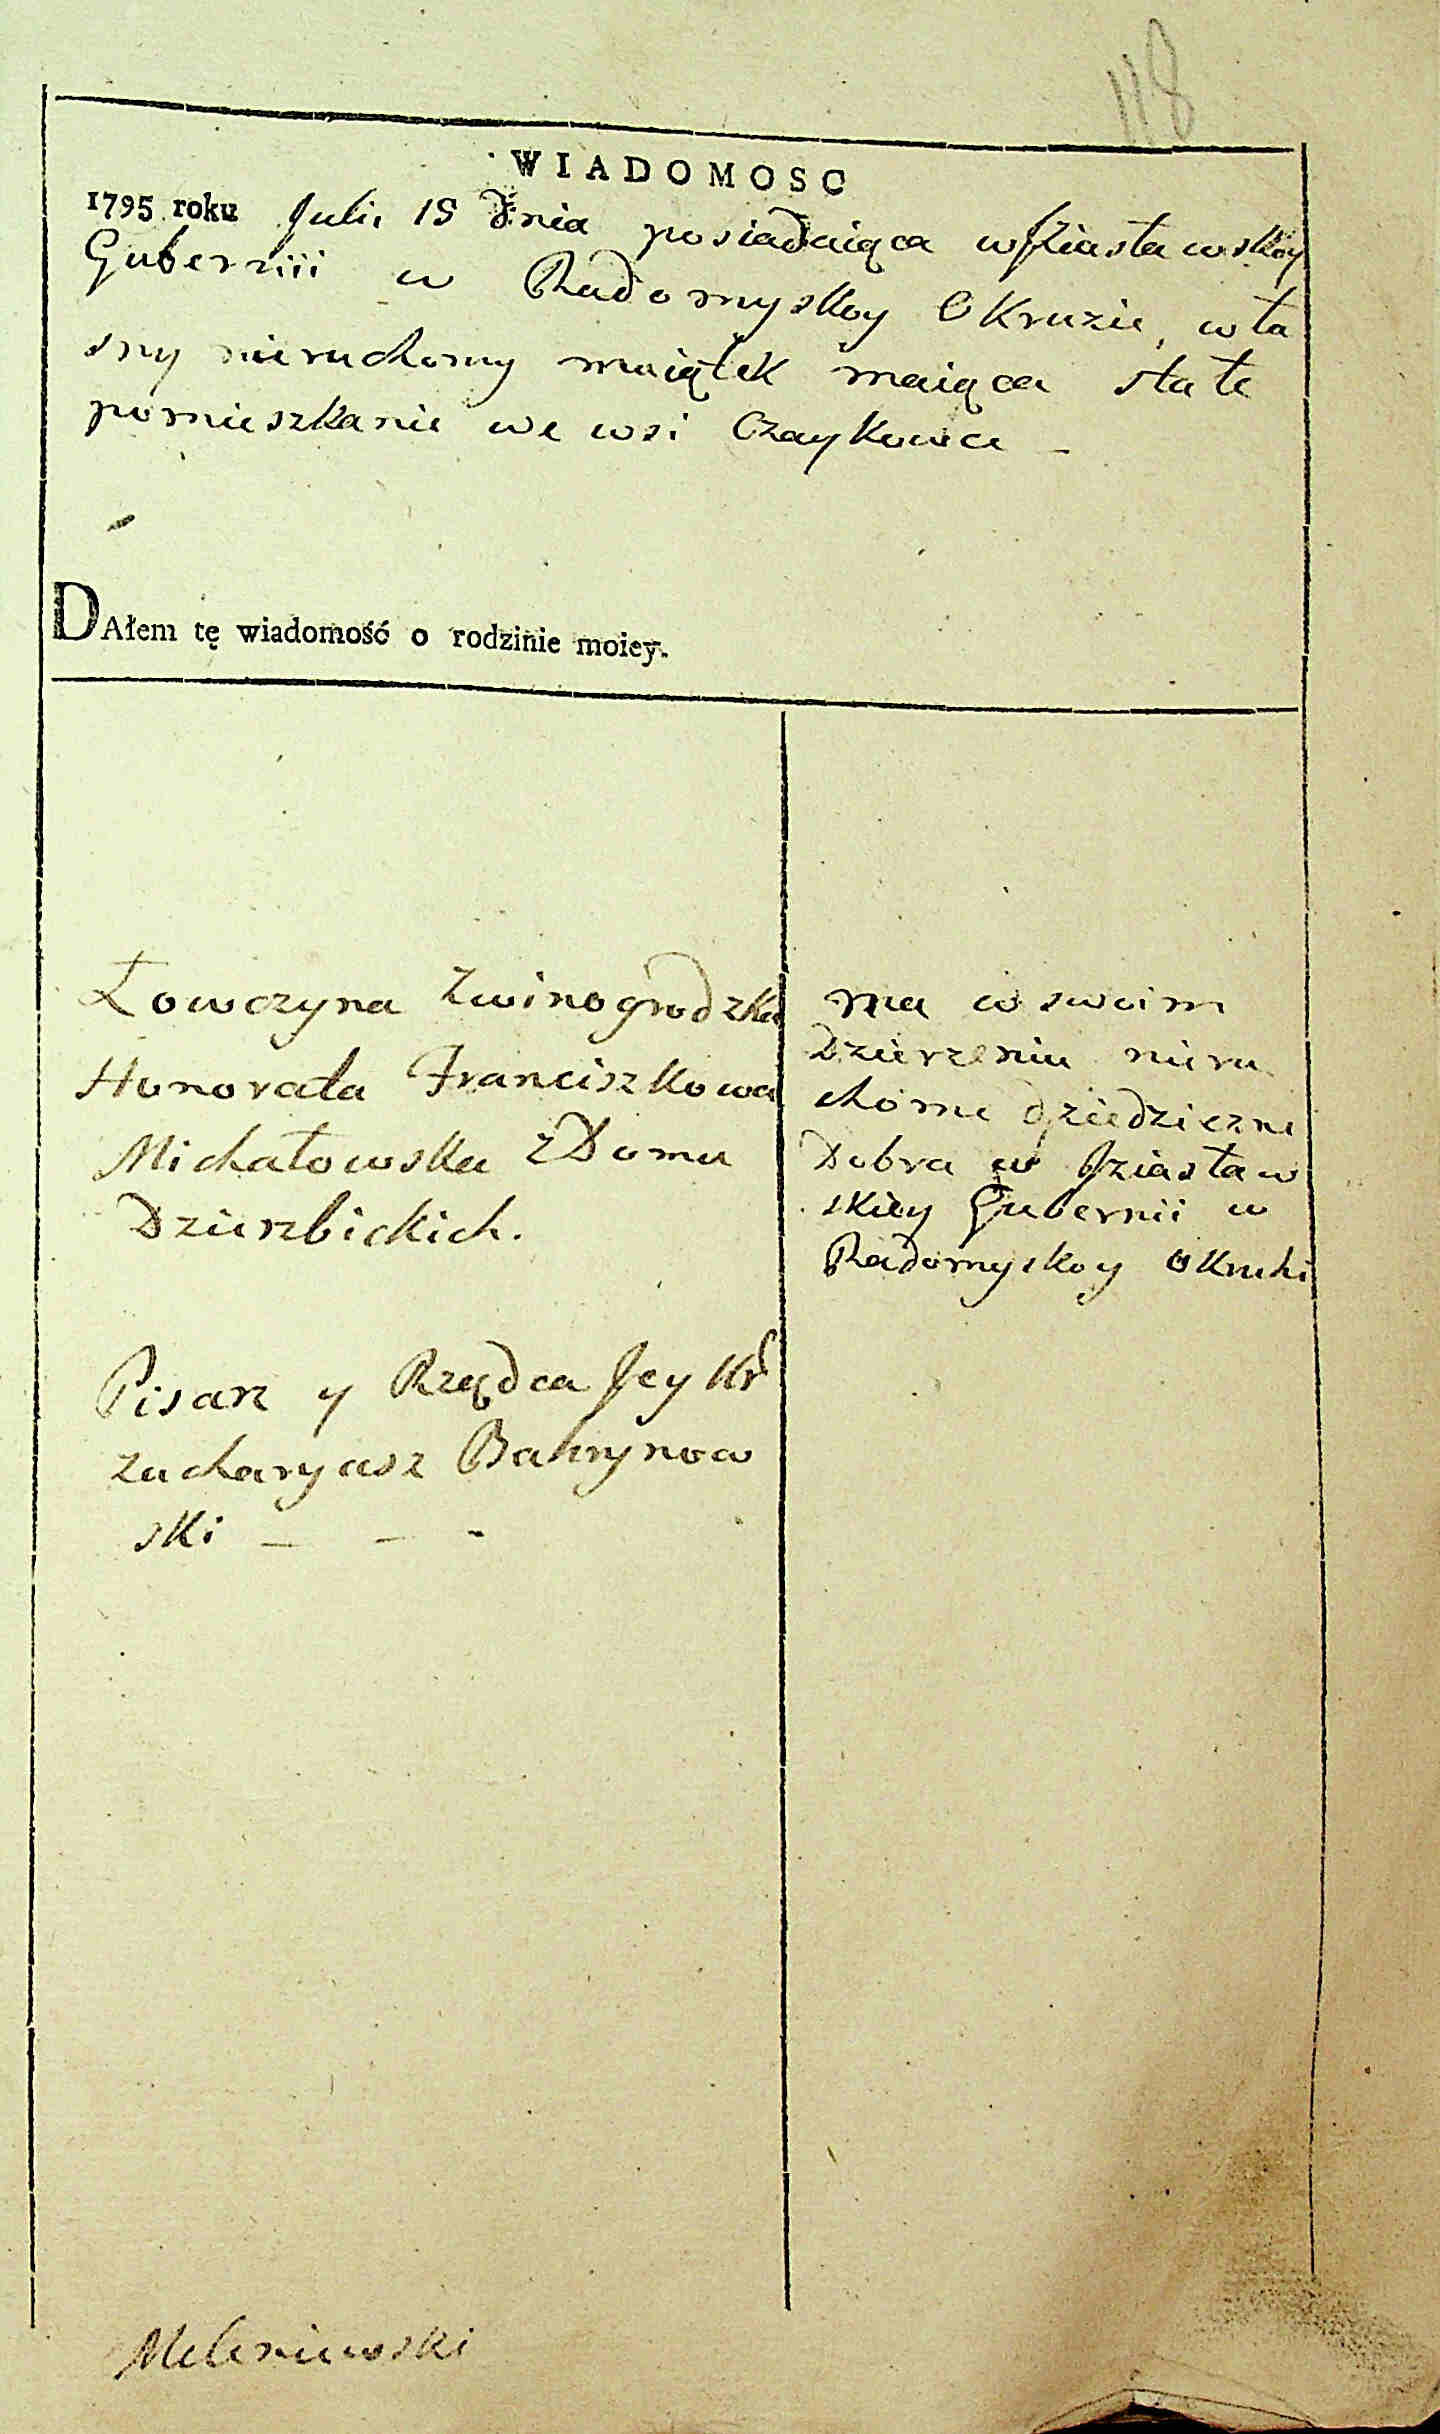 118
WIADOMOSC
1795 roku Julii 15 Dnia posiadaiąca w Iziasławskoy
Guberniii w Radomyskoy Okruzie, wła
sny nieruchomy maiątek maiąca stałe
pomieszkanie we wsi Czaykowce
DAłem tę wiadomość o rodzinie moiey.
Łowczyna Zwinogrodzka
Honorata Franciszkowa
Michałowska z Domu
Dzierzbickich.
Pisarz y Rządca Jey
Zacharyasz
ski - - -
ma w swoim
Dzierzeniu nieru
chome dziedziczne
Dobra w Iziasław
skiey Gubernii w
Radomyskoy Okruhi
Meleniewski